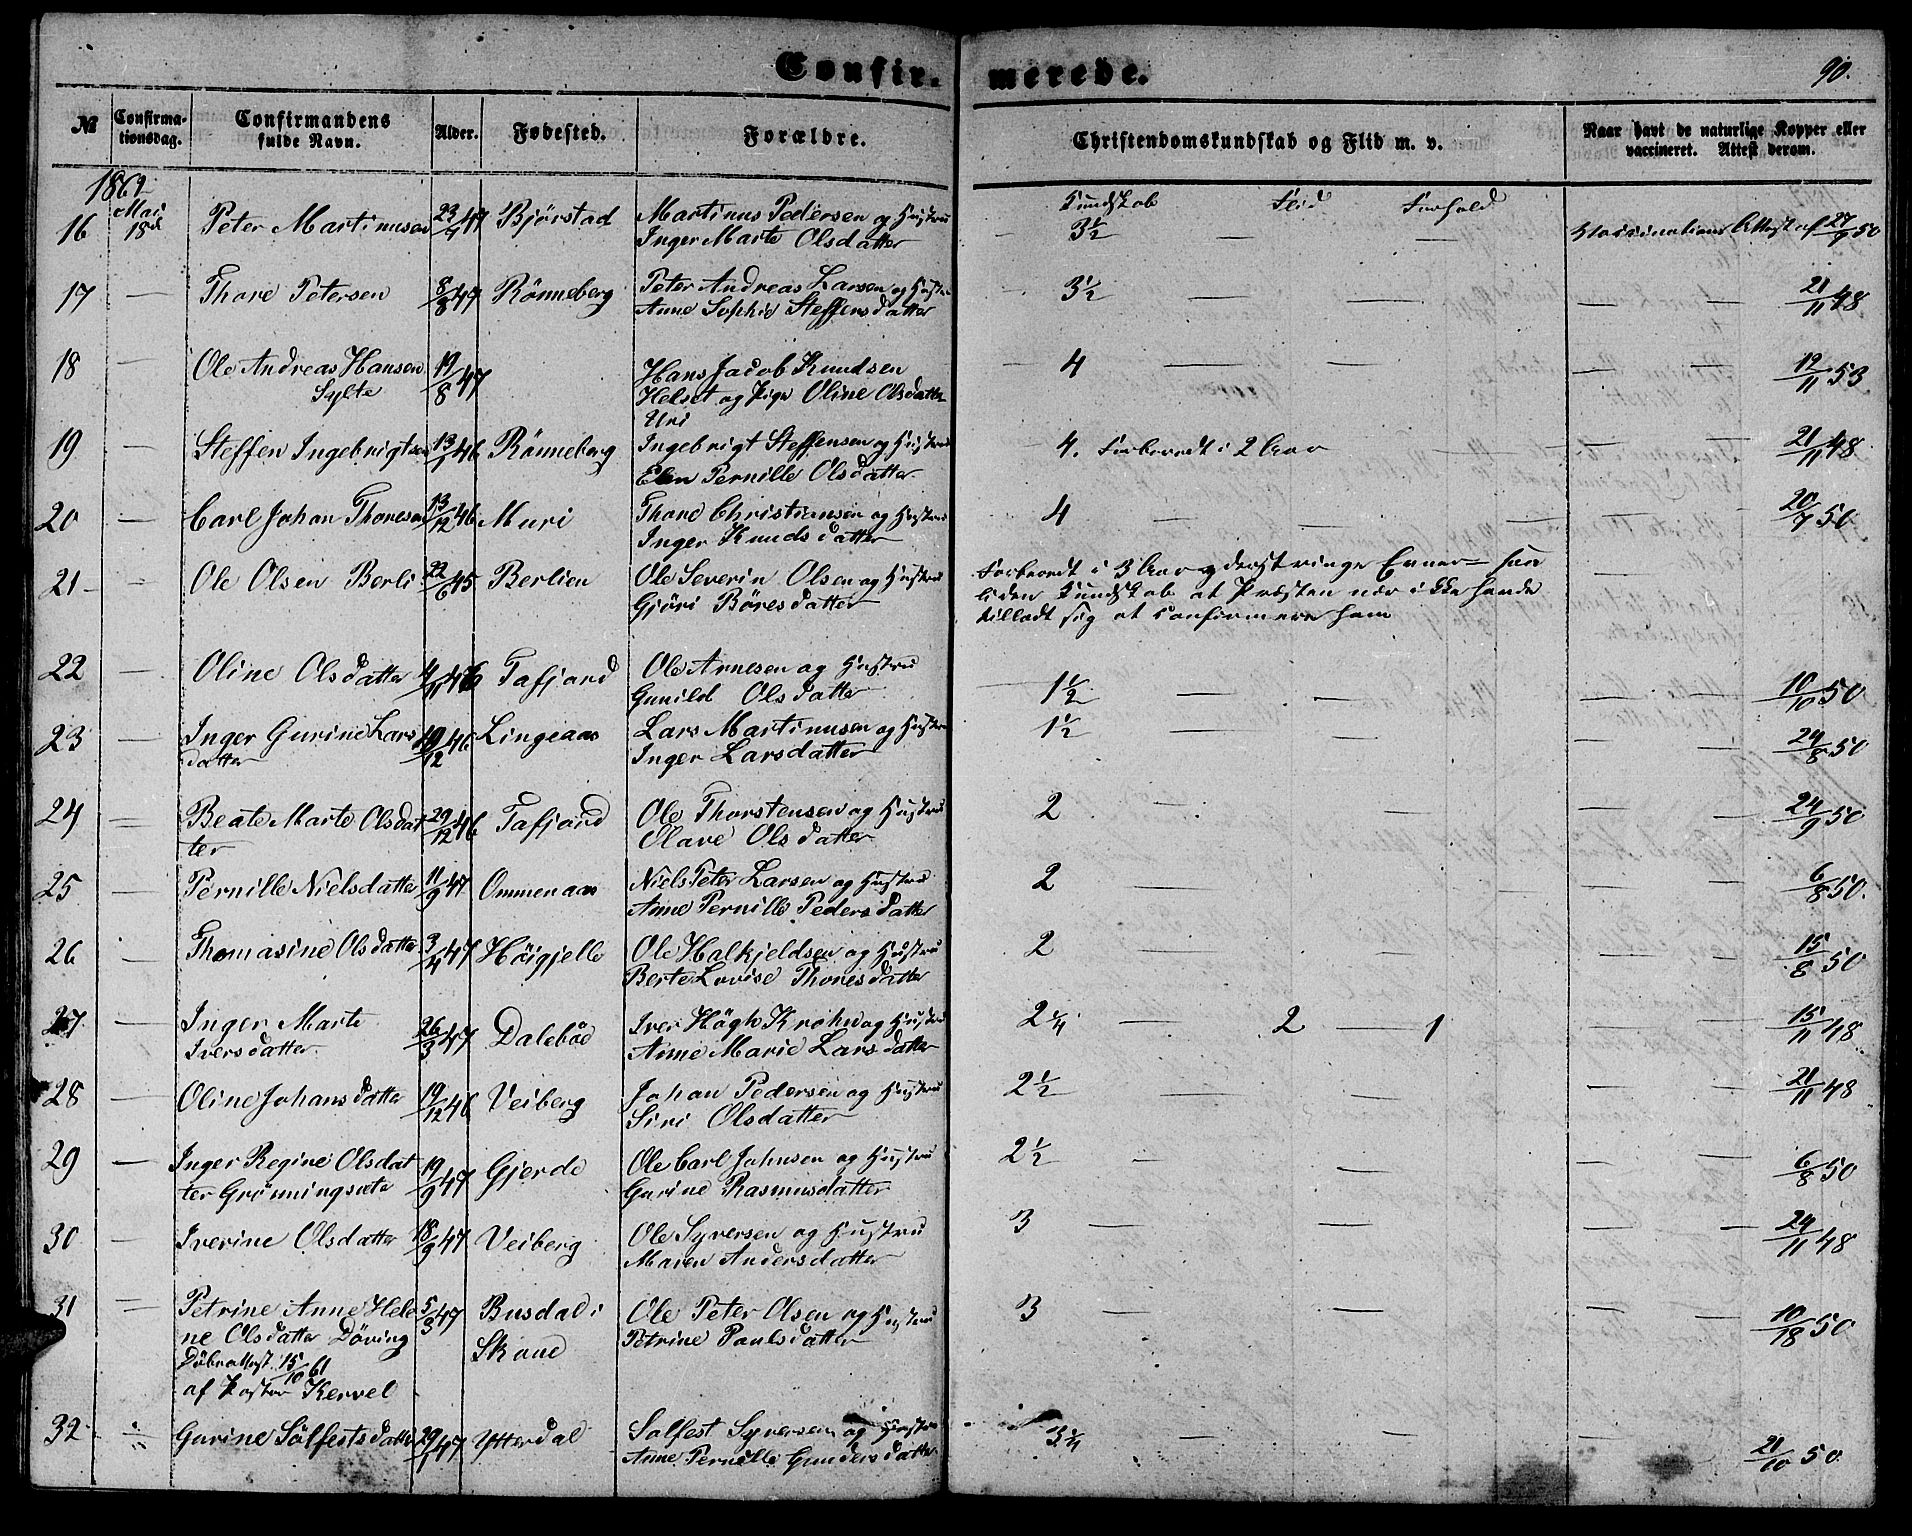 Confir-
merede.
90.
№
Confirma-
tionsdag.
Confirmandens
fulde Navn.
Alder.
Fødested.
Forældre.
Christendomskundskab og Flid m. v.
Naar havt de naturlige Kopper eller
vaccineret. Attest derom.
1862
Kundskab Flid Forhold
16 Mai 18de Peter Martinusen 23/4 47 Bjørstad Martinus Pedersen og Hustru
Inger Marte Olsdatter 3½ — — Vaccinations Attest af 27/9 50
17 — Thore Petersen 8/8 47 Rønneberg Peter Andreas Larsen og Hustru
Anne Sophie Steffensdatter 3½ — — — — 21/11 48
18 — Ole Andreas Hansen 19/8 47 Hans Jacob Knudsen
Sylte Helset og Pige Oline Olsdatter
Uri 4 — — — — 12/11 53
19 — Steffen Ingebrigtsen 13/1 46 Rønneberg Ingebrigt Steffensen og Hustru
Elen Pernille Olsdatter 4. Forberedt i 2 Aar — — — 21/11 48
20 — Carl Johan Thoresen 13/12 46 Muri Thore Christiansen og Hustru
Inger Knudsdatter 4 — — — — 20/7 50
21 — Ole Olsen Berli 22/6 45 Berlien Ole Severin Olsen og Hustru
Gjøri Børesdatter
Forberedt i 3 Aar og dog ringe Evner
liden Kundskab at Præsten neppe havde
tilladt sig at confirmere ham
22 — Oline Olsdatter 4/11 46 Tafjord Ole Arnesen og Hustru
Gunild Olsdatter 1½ — — — — 10/10 50
23 — Inger Gurine Lars 19/12 46 Lingeaas Lars Martinusen og Hustru
datter Inger Larsdatter 1½ — — — — 24/8 50
24 — Beate Marte Olsdat 29/12 46 Tafjord Ole Thorstensen og Hustru
ter Olave Olsdatter 2 — — — 24/9 50
25 — Pernille Nielsdatter 11/9 47 Ommenaas Niels Peter Larsen og Hustru
Anne Pernille Pedersdatter 2 — — — — 6/8 50.
26 — Thomasine Olsdatter 3/4 47 Høigjelle Ole Halkjeldsen og Hustru
Berte Lovise Thoresdatter 2 — — — — 15/8 50
27 — Inger Marte 26/3 47 Dalebøe Iver Høgh Krohn og Hustru
Iversdatter Anne Marie Larsdatter 2¼ — 2 — 1 — — 15/11 48
28 — Oline Johansdatter 19/12 46 Veiberg Johan Pedersen og Hustru
Siri Olsdatter 2½ — — — — 21/11 48
29 — Inger Regine Olsdat 19/9 47 Gjerde Ole Carl Johnsen og Hustru
ter Grønningsæte Gurine Rasmusdatter 2½ — — — — 6/8 50
30 — Iverine Olsdatter 18/9 47 Veiberg Ole Syversen og Hustru
Maren Andersdatter 3 — — — — 24/11 48
31 — Petrine Anne Hele 5/3 47 Busdal i Ole Peter Olsen og Hustru
ne Olsdatter Døving Skoue Petrine Paulsdatter 3 — — — — 10/18 50
Døbeattest 15/10 61
af Pastor Kervel
32 Gurine Sølfestsdatter 29/1 47 Ytterdal Solfest Syversen og Hustru
Anne Pernille Gundersdatter 3¼ — — — — 21/10 50